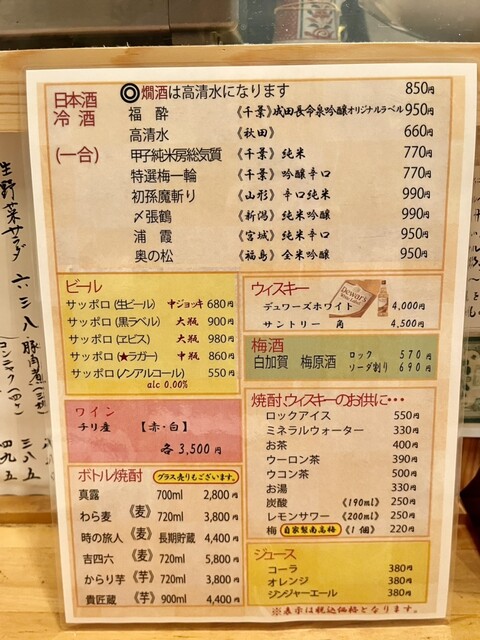 日本酒
冷酒
(一合)
◎燗酒は高清水になります 850円
福酔 《千葉》成田長命泉吟醸オリジナルラベル 950円
高清水 《秋田》 660円
甲子純米房総気質 《千葉》純米 770円
特選梅一輪 《千葉》吟醸辛口 770円
初孫魔斬り 《山形》辛口純米 990円
〆張鶴 《新潟》純米吟醸 990円
浦霞 《宮城》純米辛口 950円
奥の松 《福島》全米吟醸 950円
ビール
サッポロ(生ビール) 中ジョッキ 680円
サッポロ(黒ラベル) 大瓶 900円
サッポロ(ヱビス) 大瓶 980円
サッポロ(★ラガー) 中瓶 860円
サッポロ(ノンアルコール) 550円
alc 0.00%
ワイン
チリ産 【赤・白】
各3,500円
ボトル焼酎 グラス売りもございます。
真露 700ml 2,800円
わら麦 《麦》 720ml 3,800円
時の旅人 《麦》 長期貯蔵 4,400円
吉四六 《麦》 720ml 5,800円
からり芋 《芋》 720ml 3,800円
貴匠蔵 《芋》 900ml 4,400円
ウィスキー
Dewar's
White Label
デュワーズホワイト 4,000円
サントリー 角 4,500円
梅酒
白加賀 梅原酒 ロック 570円
ソーダ割り 690円
焼酎、ウィスキーのお供に・・・
ロックアイス 550円
ミネラルウォーター 330円
お茶 400円
ウーロン茶 390円
ウコン茶 500円
お湯 330円
炭酸 《190ml》 250円
レモンサワー 《200ml》 250円
梅 自家製南高梅 《1個》 220円
ジュース
コーラ 380円
オレンジ 380円
ジンジャーエール 380円
※表示は税込価格となります。
生野菜サラダ 六三八
豚肉煮
コンニャク
三八五
四九五